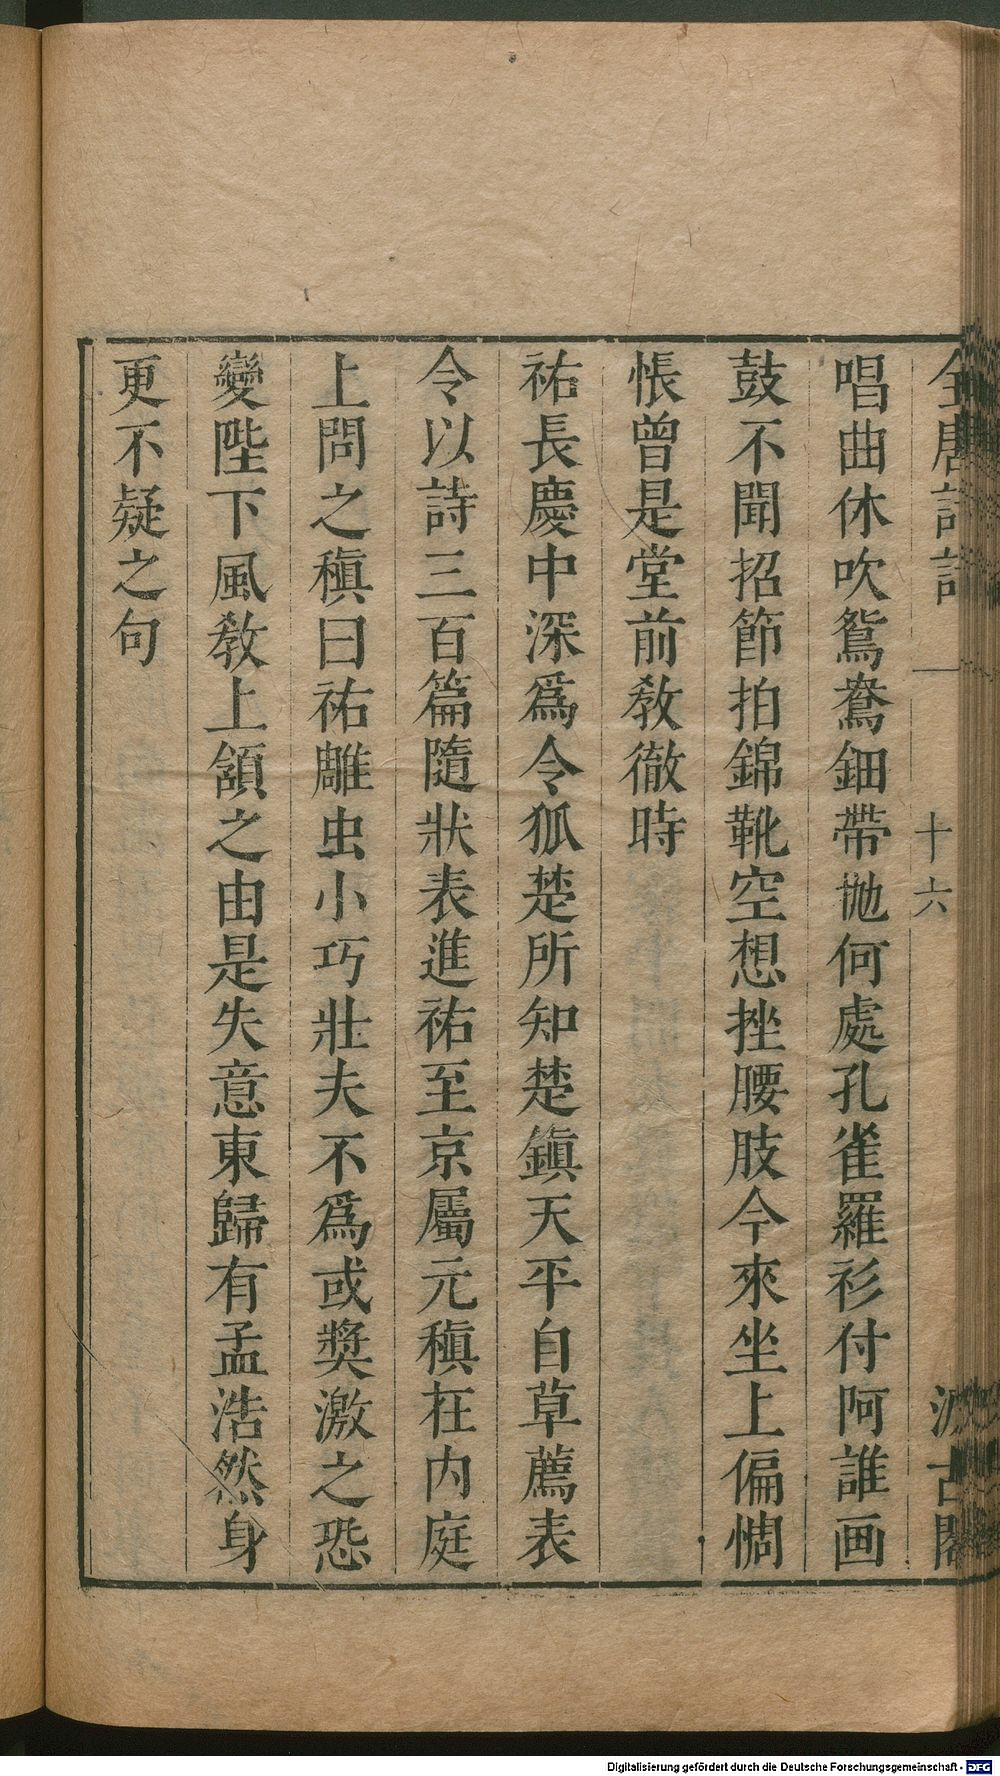 全唐詩話 一 十六 汲古閣
唱曲休吹鴛鴦鈿帶抛何處孔雀羅衫付阿誰画
鼓不聞招節拍錦靴空想挫腰肢今來坐上偏惆
悵曾是堂前教徹時
祐長慶中深爲令狐楚所知楚鎮天平自草薦表
令以詩三百篇隨狀表進祐至京屬元稹在内庭
上問之稹曰祐雕虫小巧壯夫不爲或奬激之恐
變陛下風教上頷之由是失意東歸有孟浩然身
更不疑之句
Digitalisierung gefördert durch die Deutsche Forschungsgemeinschaft - DFG